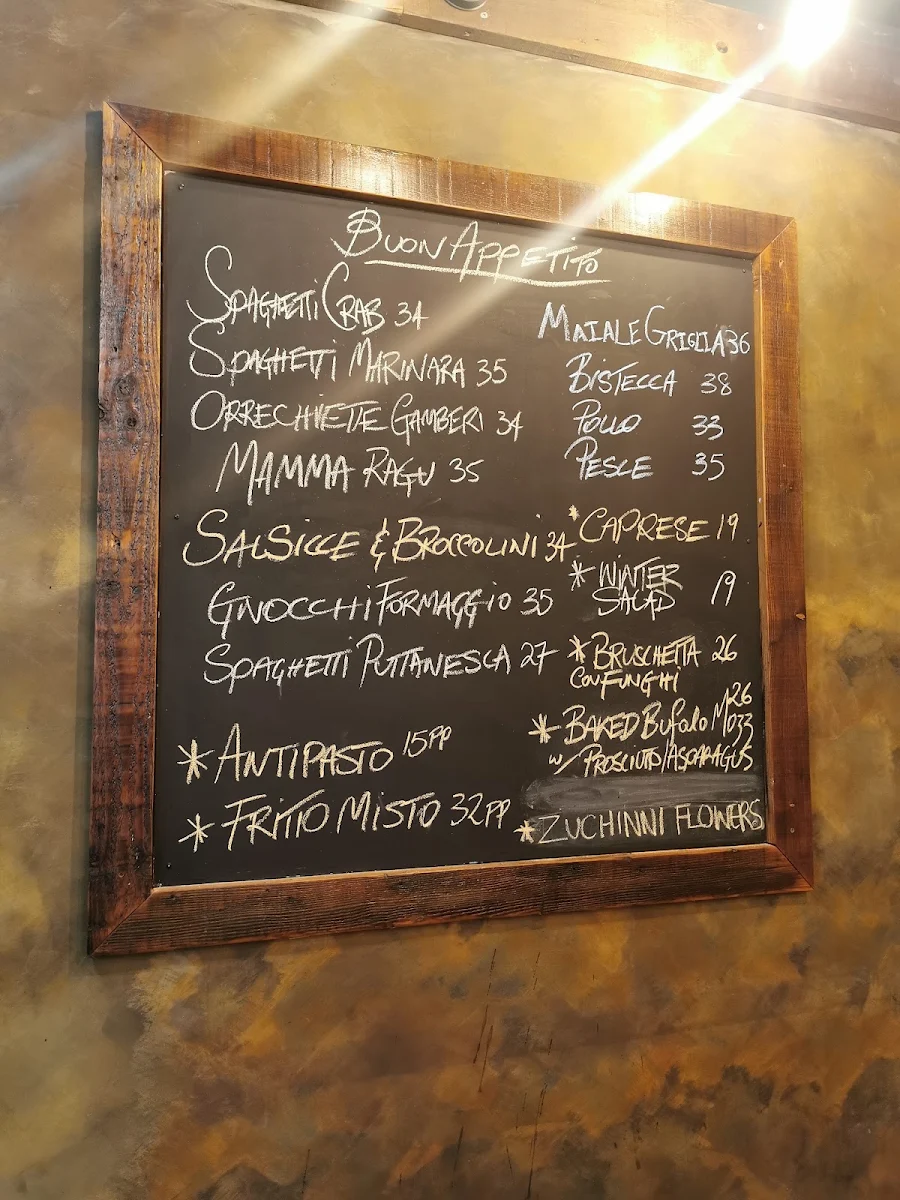 Buon Appetito
Spaghetti Crab 34
Spaghetti Marinara 35
Orrechiette Gamberi 34
Mamma Ragu 35
Salsicce & Broccolini 34
Gnocchi Formaggio 35
Spaghetti Puttanesca 27
* Antipasto 15pp
* Fritto Misto 32pp
Maiale Griglia 36
Bistecca 38
Pollo 33
Pesce 35
* Caprese 19
* Winter
Salad 19
* Bruschetta 26
con Funghi
* Baked Bufalo Mozz 26
w/ Prosciuto/Asparagus
* Zuchinni Flowers